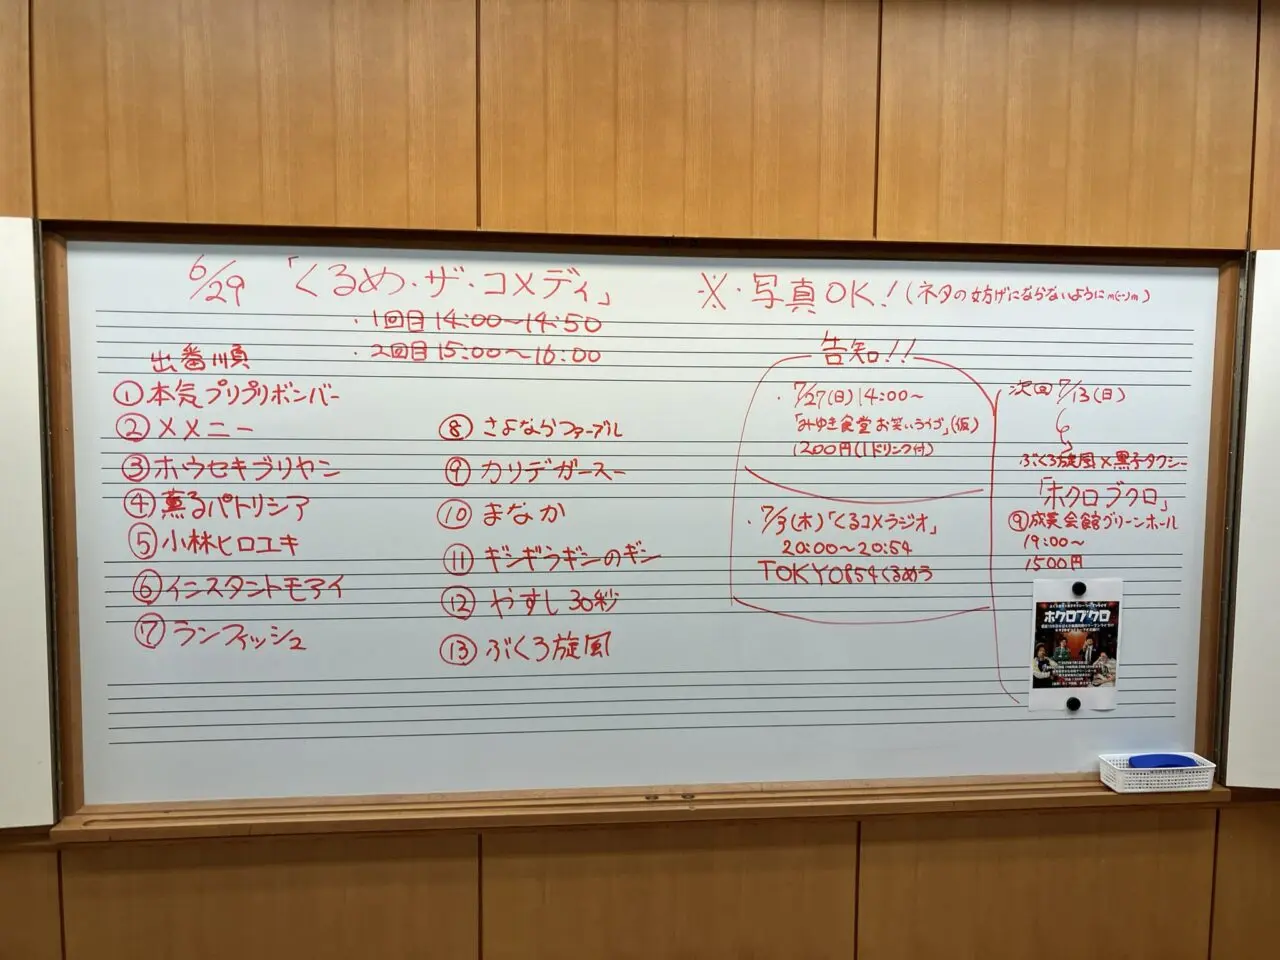 6/29 「くるめ・ザ・コメディ」
・1回目 14:00〜14:50
・2回目 15:00〜16:00
※・写真OK!(ネタの妨げにならないようにm(--)m)
出番順
①本気プリプリボンバー
②メメニー
③ホウセキブリヤン
④薫るパトリシア
⑤小林ヒロユキ
⑥インスタントモアイ
⑦ランフィッシュ
⑧さよならファーブル
⑨カリデガースー
⑩まなか
⑪ギシギラギシのギシ
⑫やすし30秒
⑬ぶくろ旋風
告知!!
・7/27(日)14:00〜
「みゆき食堂お笑いライブ」(仮)
1200円(1ドリンク付)
・7/3(木)「くるコメラジオ」
20:00〜20:54
TOKYO854くるめラ
次回7/13(日)
ぶくろ旋風×黒子タクシー
「ホクロブクロ」
㋐成美会館グリーンホール
19:00〜
1500円
ホクロブクロ